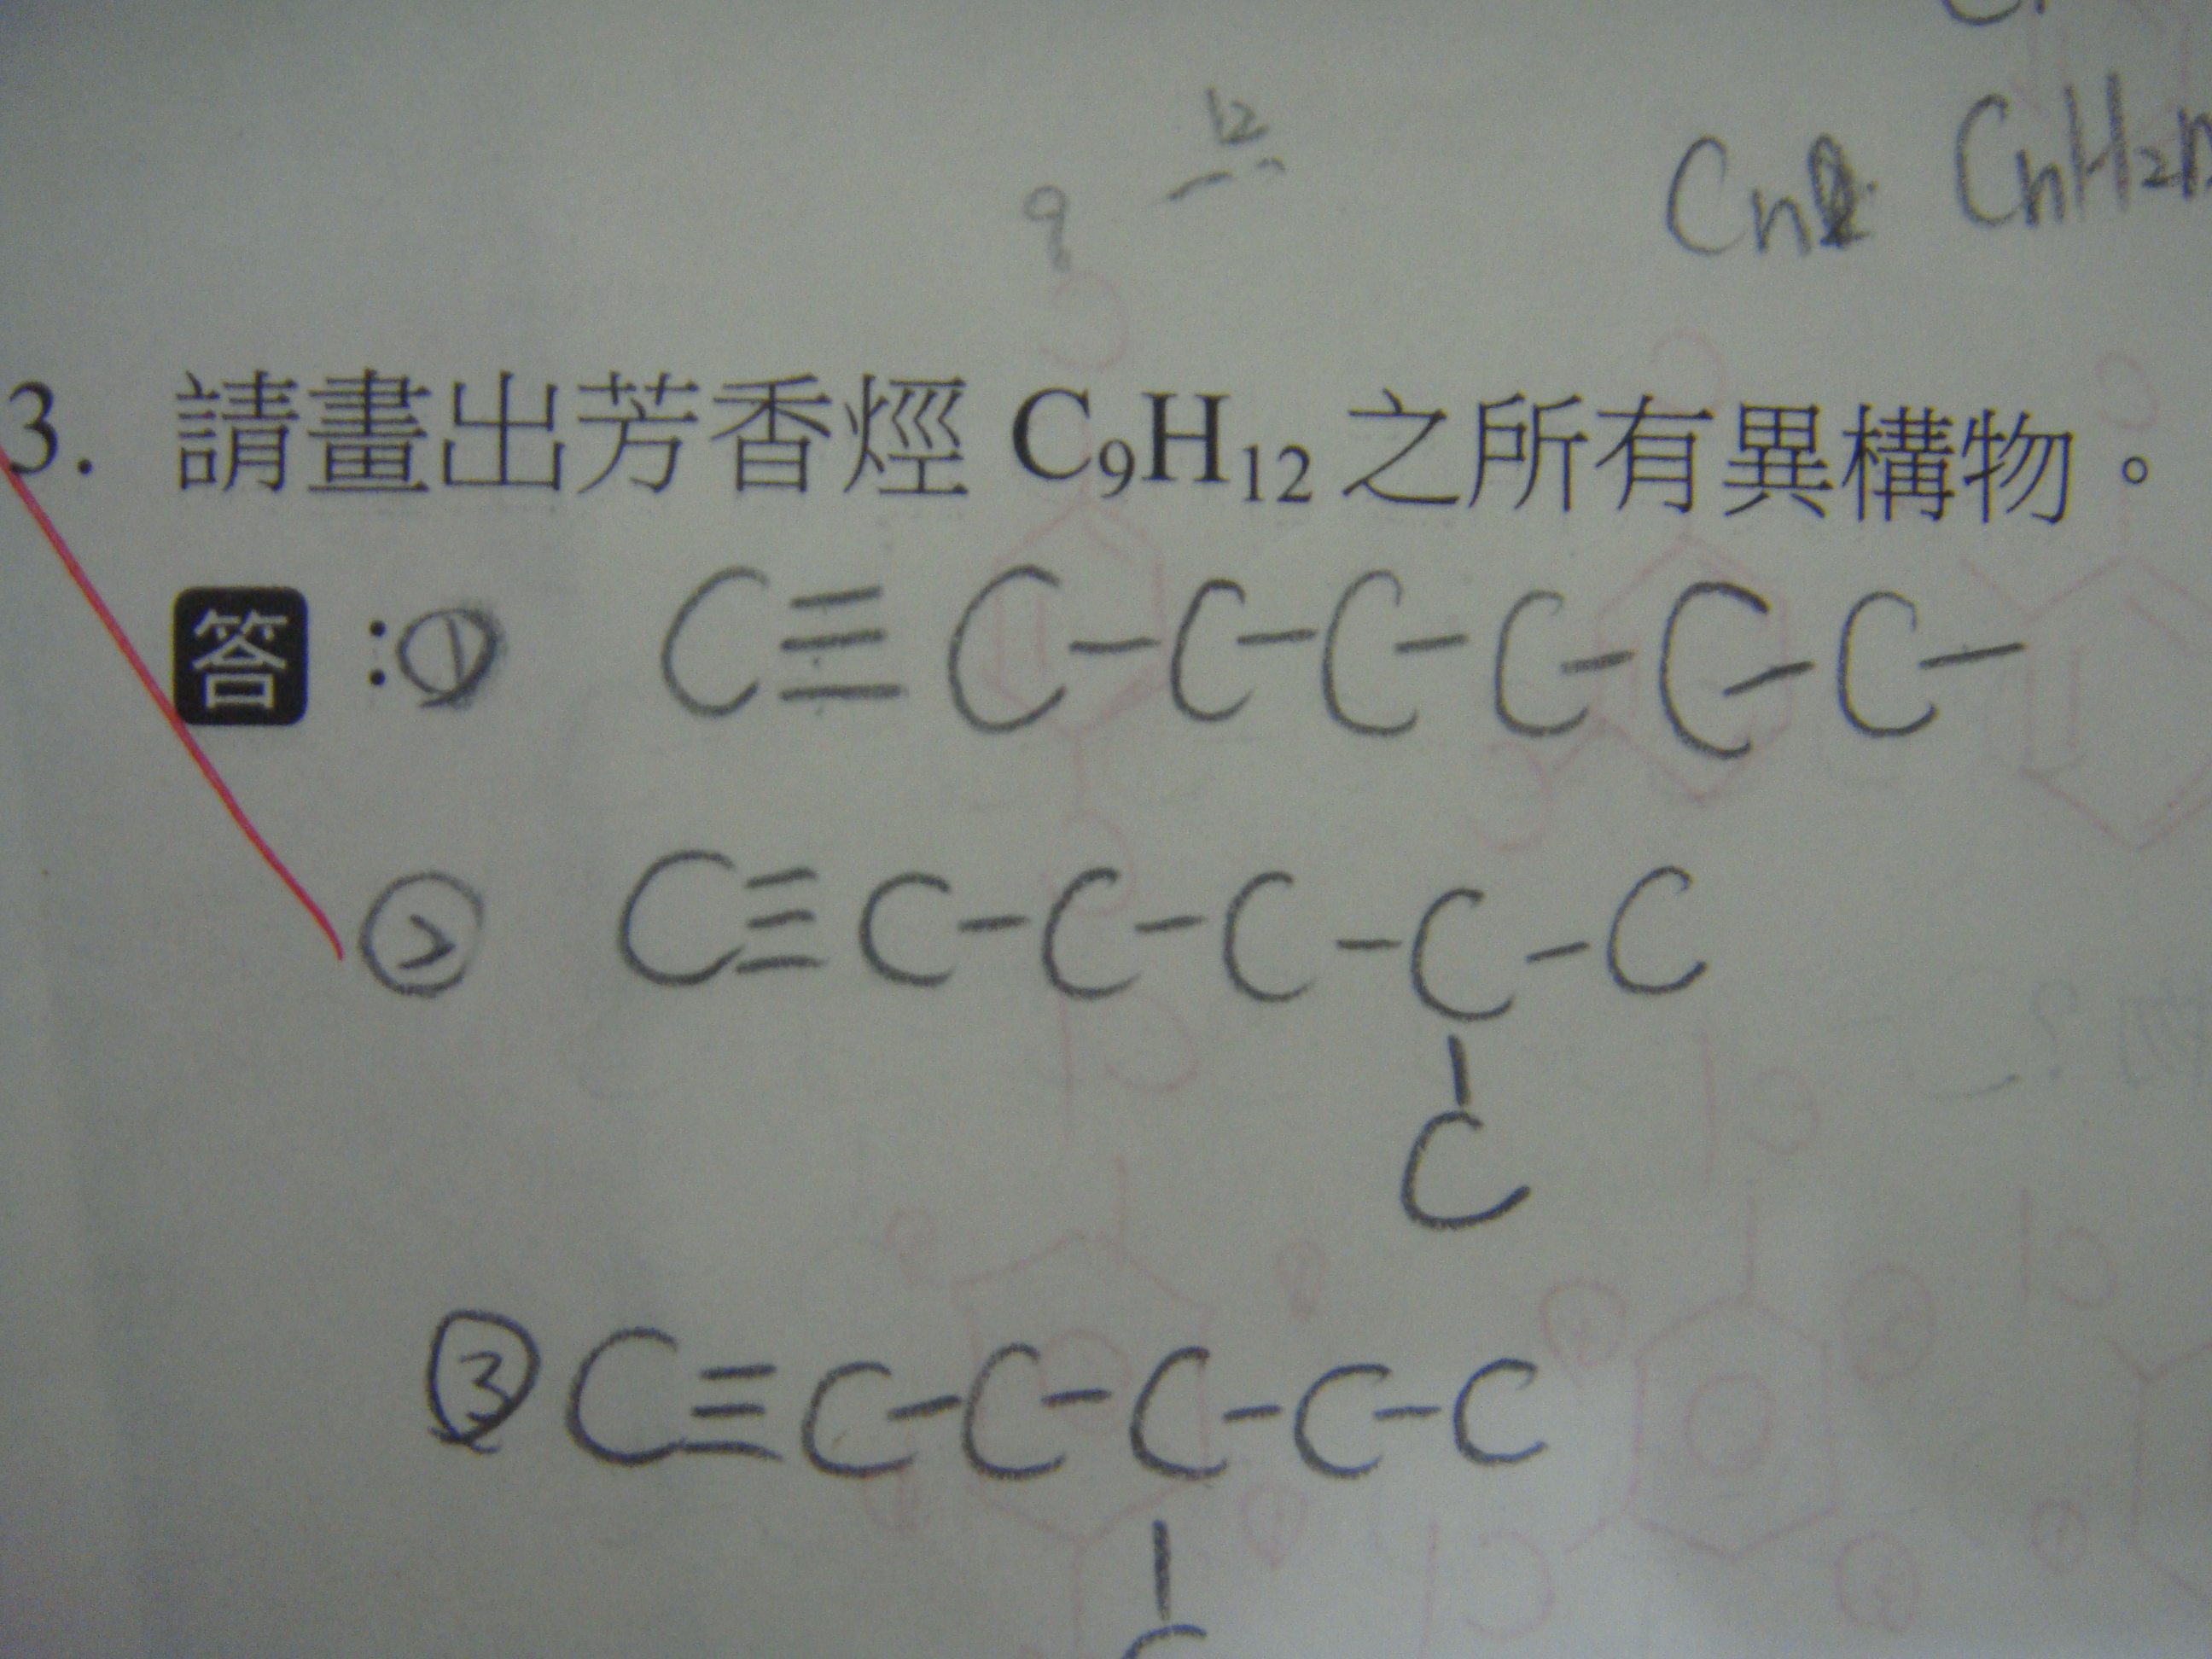 12
9
Cn CnH2n
3. 請畫出芳香烴 C₉H₁₂ 之所有異構物。
答:① C≡C-C-C-C-C-C-
② C≡C-C-C-C-C
C
③ C≡C-C-C-C-C
C